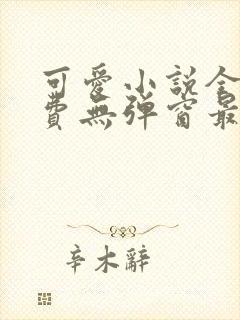 可愛小說全
費無彈窗最
辛木辭